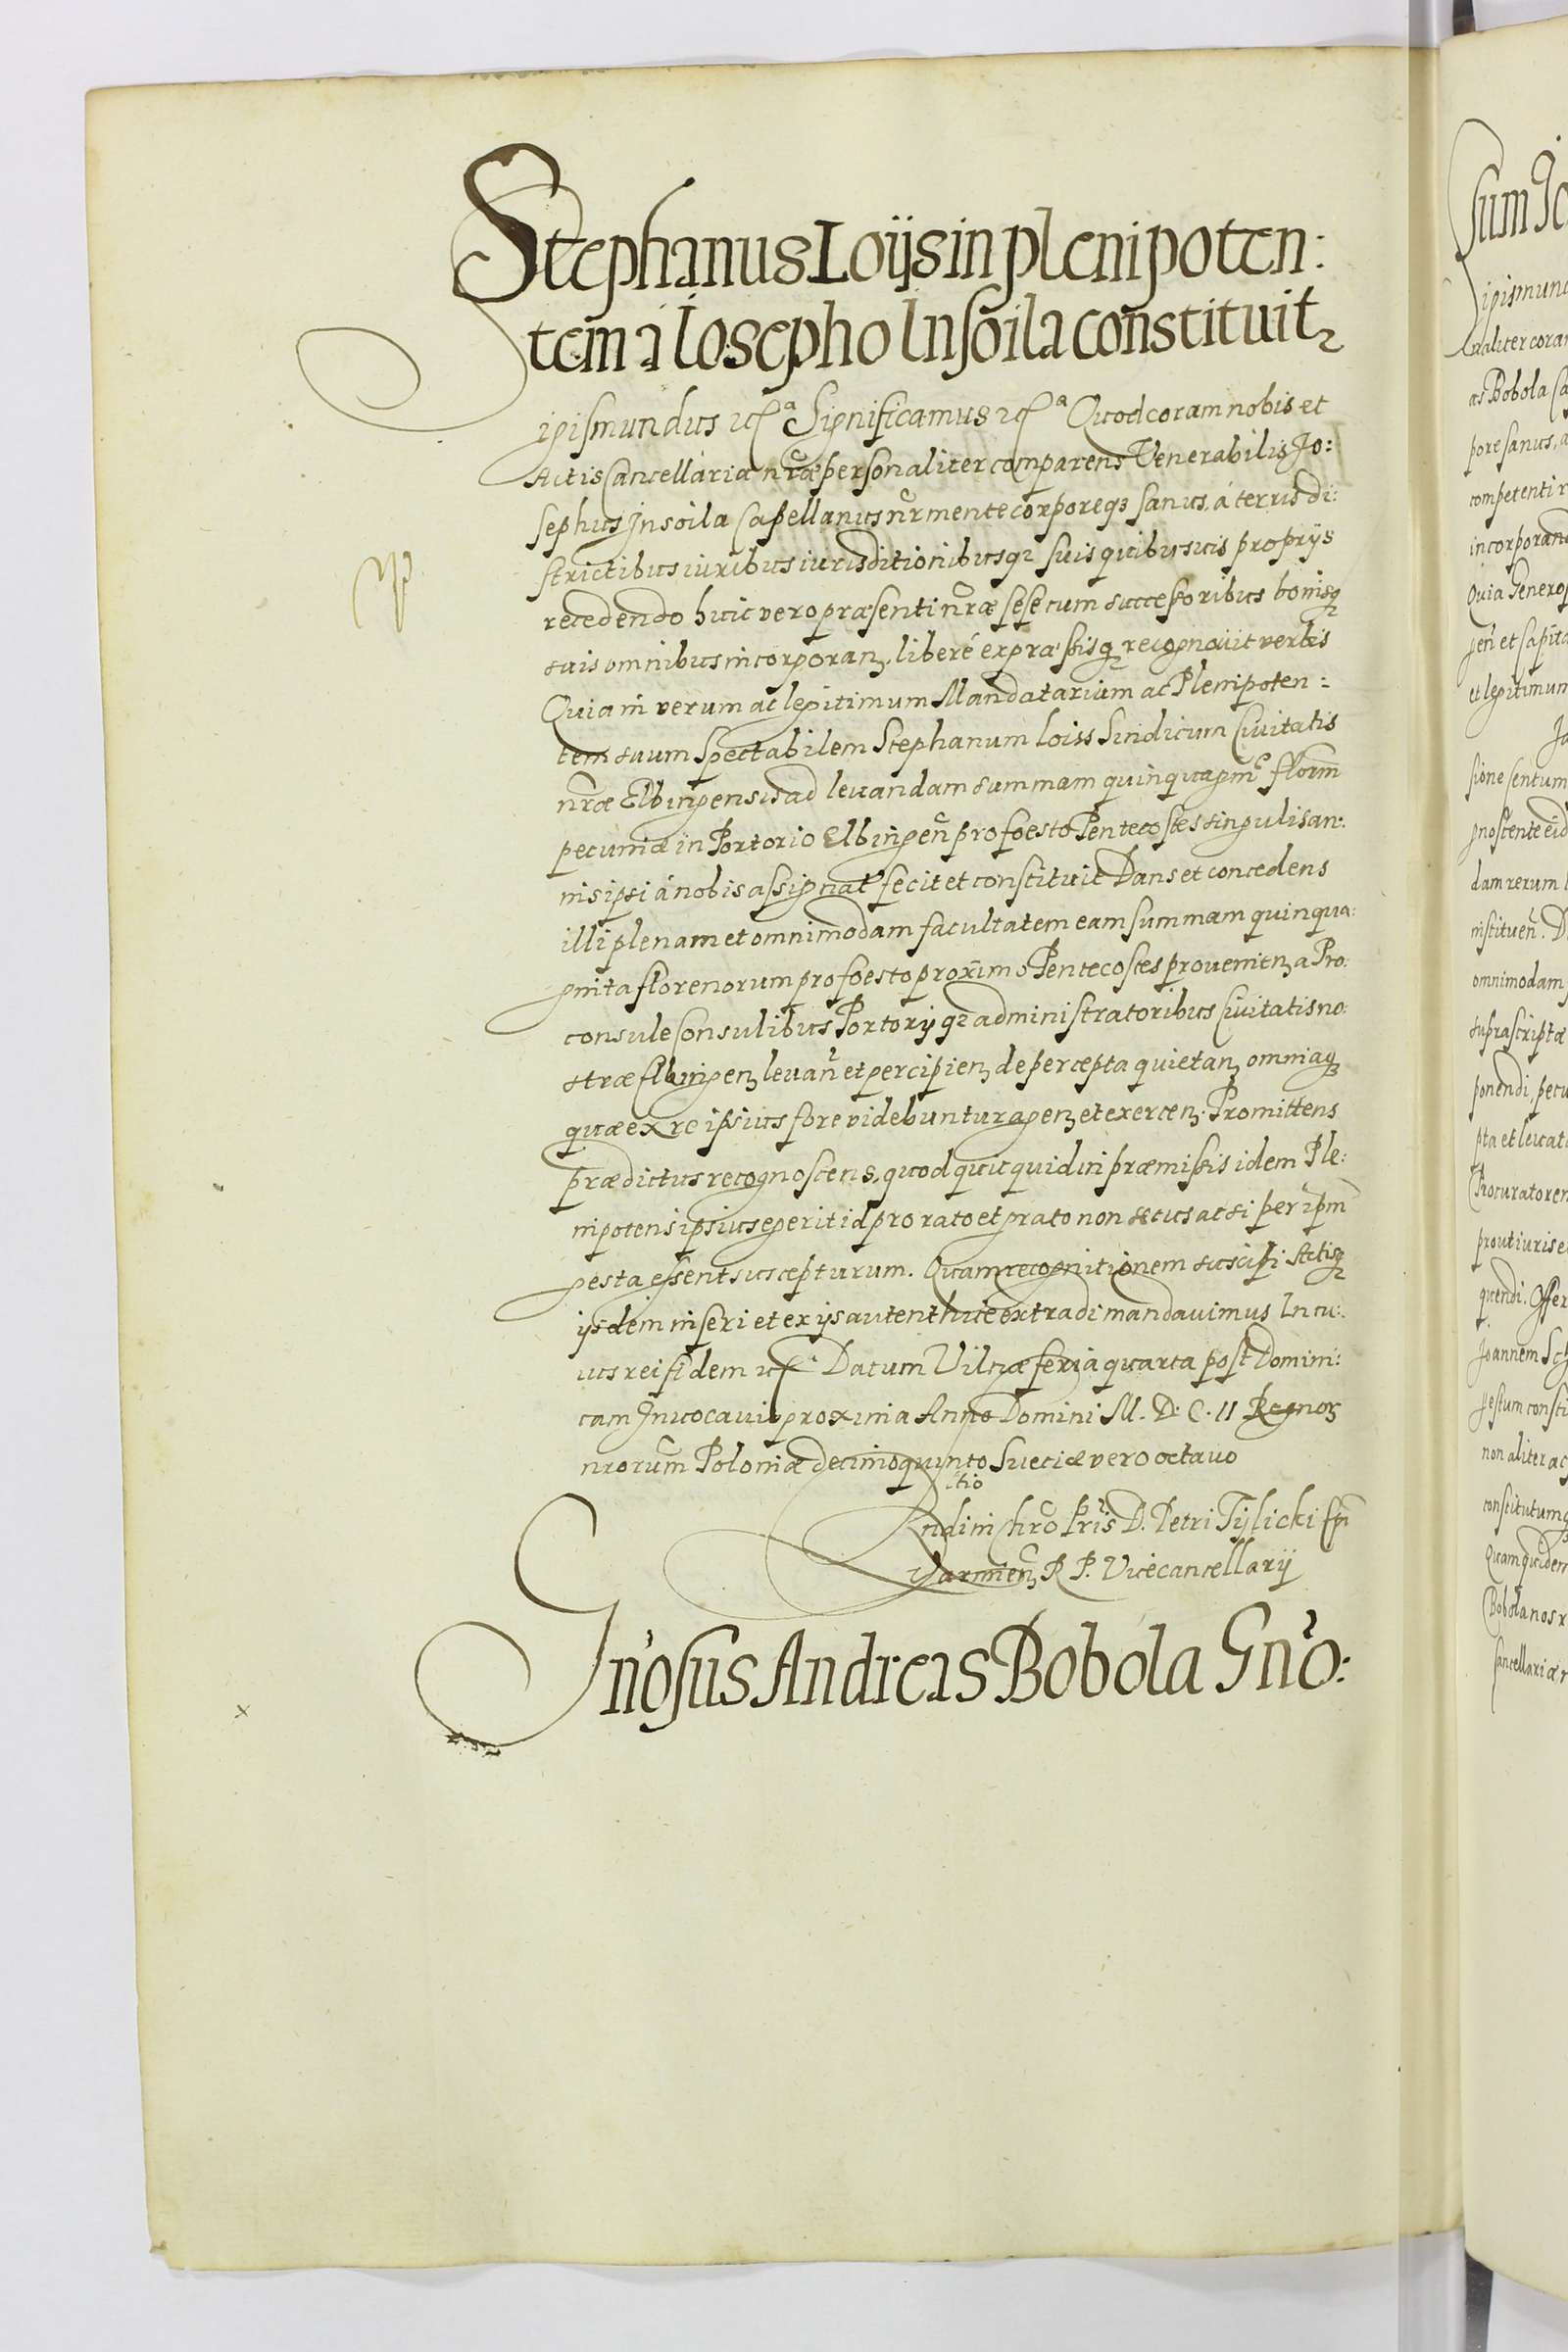 Stephanus Loijs in plenipoten:
tem a Iosepho Insoila constituitꝛ
Sigismundus ꝛcᵃ Significamus ꝛcᵃ Quod coram nobis et
Actis Cancellariæ nr̃æ personaliter comparens Venerabilis Jo:
sephus Insoila Capellanus nr̃ mente corporeqꝫ sanus, á terris di:
strictibus iuribus iurisditionibusqꝫ suis quibusuis proprijs
recedendo huic vero præsenti nr̃æ sese cum successoribus bonisqꝫ
suis omnibus incorporanꝫ. liberé expræssisqꝫ recognouit verbis
Quia in verum ac legitimum Mandatarium ac Plenipoten:
tem suum Spectabilem Stephanum Loiss Sindicum Ciuitatis
nr̃æ Elbingensis ad leuandam summam quinquagintᵃ florñ
pecuniæ in Portorio Elbingeñ pro foesto Pentecostes singulis an:
nis ipsi á nobis assignat̃ fecit et constituit Dans et concedens
illi plenam et omnimodam facultatem eam summam quinqua:
ginta florenorum pro foesto proximo Pentecostes prouenienꝫ a Pro:
consule Consulibus Portorijqꝫ administratoribus Ciuitatis no:
stræ Elbingenꝫ leuañ et percipienꝫ de percepta quietanꝫ omniaqꝫ
quæ ex re ipsius fore videbuntur agenꝫ et exercenꝫ. Promittens
prædictus recognoscens, quod quicquid in præmissis idem Ple:
nipotens ipsius egerit id pro rato et grato non secus ac si per ip̃m
gesta essent suscepturum. Quam recognitionem suscipi Actisqꝫ
ijsdem inseri et ex ijs autenthice extradi mandauimus In cu:
ius rei fidem ꝛc Datum Vilnæ feria quarta post Domini:
cam Inuocauit proxima Anno Domini M. D. C. II Regnorꝫ
nrorum̃ Poloniæ decimoquinto Sueciæ vero octauo
Rndi in Chrõ Pr̃is D. Petri Tijlicki Epĩ
Varmienꝫ R P. Vicecancellarij
Gñosus Andreas Bobola Gño: